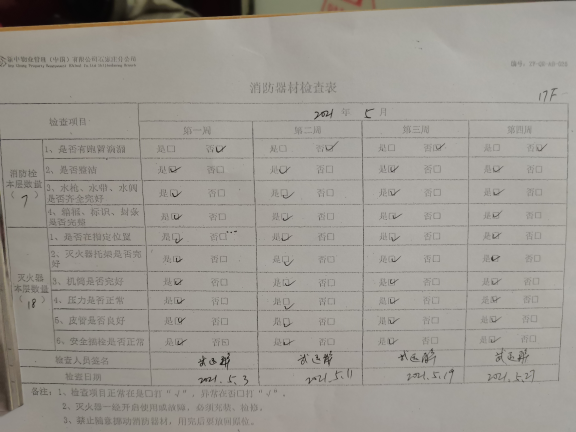 消防器材检查表
17F
检查项目 2021年5月
第一周 第二周 第三周 第四周
消防栓本层数量(7)
1、是否有跑冒滴漏 是□ 否☑ 是□ 否☑ 是□ 否☑ 是□ 否☑
2、是否整洁 是☑ 否□ 是☑ 否□ 是☑ 否□ 是☑ 否□
3、水枪、水带、水阀是否齐全完好 是☑ 否□ 是☑ 否□ 是☑ 否□ 是☑ 否□
4、箱体、标识、封条是否完整 是☑ 否□ 是☑ 否□ 是☑ 否□ 是☑ 否□
灭火器本层数量(18)
1、是否在指定位置 是☑ 否□ 是☑ 否□ 是☑ 否□ 是☑ 否□
2、灭火器托架是否完好 是☑ 否□ 是☑ 否□ 是☑ 否□ 是☑ 否□
3、机筒是否完好 是☑ 否□ 是☑ 否□ 是☑ 否□ 是☑ 否□
4、压力是否正常 是☑ 否□ 是☑ 否□ 是☑ 否□ 是☑ 否□
5、皮管是否良好 是☑ 否□ 是☑ 否□ 是☑ 否□ 是☑ 否□
6、安全插栓是否正常 是☑ 否□ 是☑ 否□ 是☑ 否□ 是☑ 否□
检查人员签名
检查日期 2021.5.3 2021.5.11 2021.5.19 2021.5.27
备注：1、检查项目正常在是□打"√"，异常在否□打"√"。
2、灭火器一经开启使用或故障，必须充装、检修。
3、禁止随意挪动消防器材，用完后要放回原位。